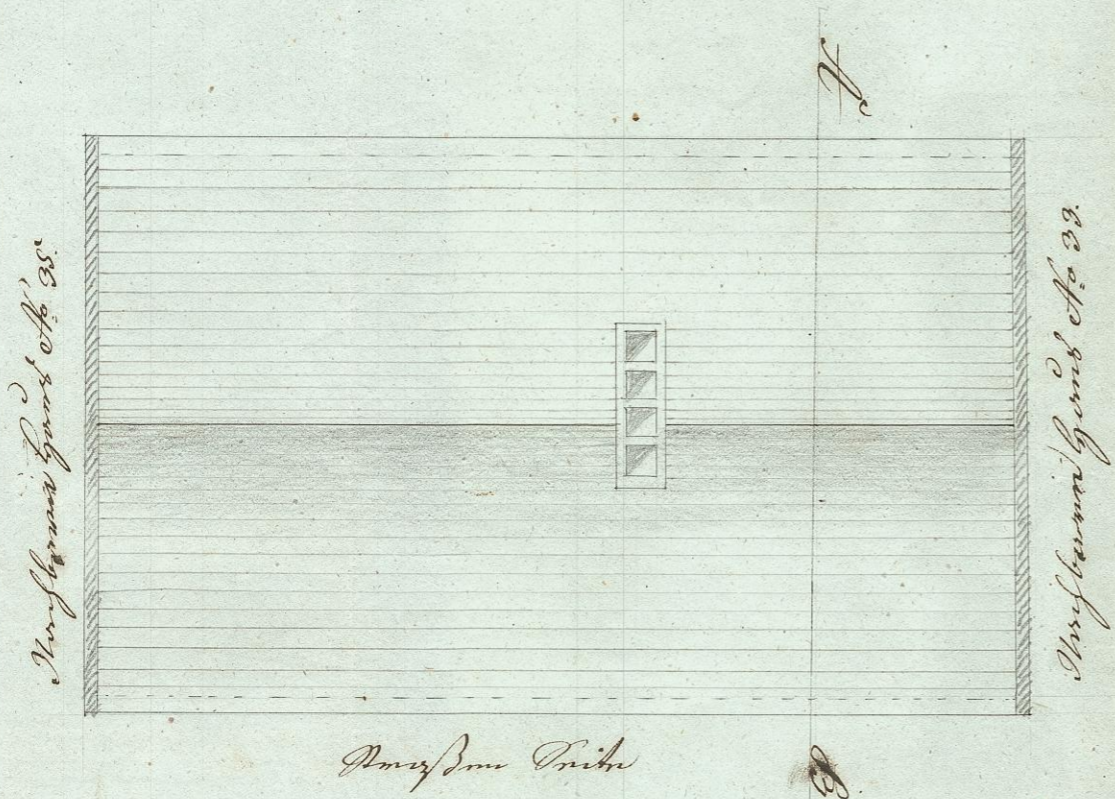 A
Nachbarns Haus No 35.
Nachbarns Haus No 33.
Straßen Seite
B